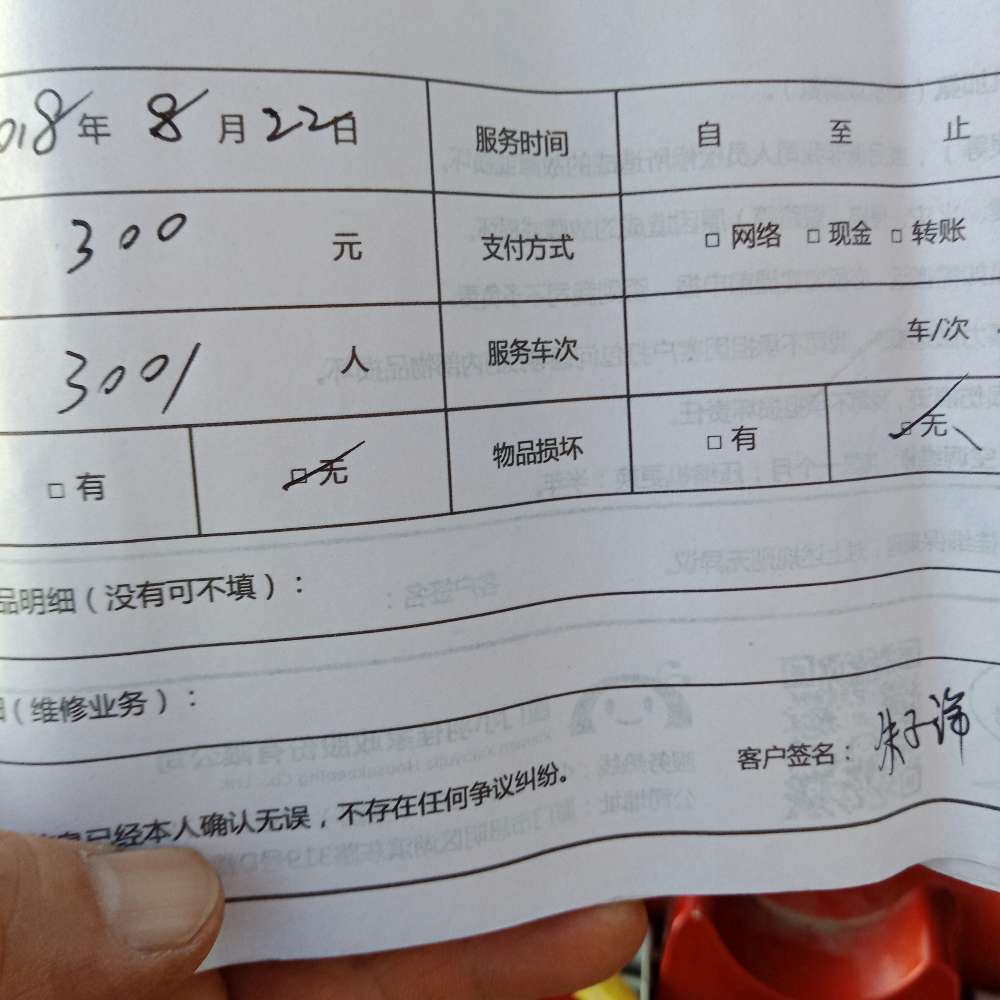 018年 8月22日 服务时间 自 至 止
300 元 支付方式 □ 网络 □ 现金 □ 转账
3001 人 服务车次 车/次
□ 有 □ 无 物品损坏 □ 有 □ 无
品明细（没有可不填）：
（维修业务）：
客户签名：
已经本人确认无误，不存在任何争议纠纷。